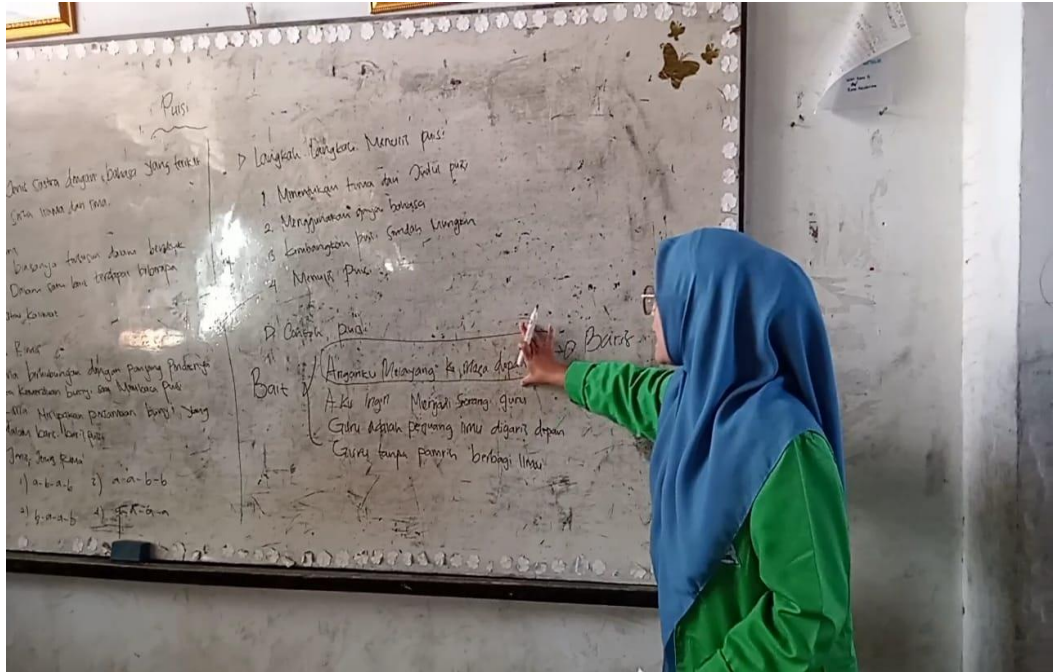 Puisi
Jenis Sastra dengan bahasa yang terikat
irama dan rima.
biasanya dalam berbentuk
Dalam satu bait terdapat beberapa
atau kalimat
Rima
berhubungan dengan panjang pendeknya
bunyi saat Membaca Puisi
Merupakan persamaan bunyi yang
dalam baris-baris puisi
Jenis Jenis Rima
1) a-b-a-b 2) a-a-b-b
3) b-a-a-b 4) a-a-a-a
Langkah-Langkah Menulis puisi
1. Menentukan tema dan Judul puisi
2. Menggunakan gaya bahasa
3 kembangkan puisi Seindah Mungkin
4 Menulis Puisi
Contoh puisi
Bait
Anganku Melayang ke masa depan
Baris
Aku Ingin Menjadi Seorang guru
Guru adalah pejuang ilmu digaris depan
Guru tanpa pamrih berbagi Ilmu